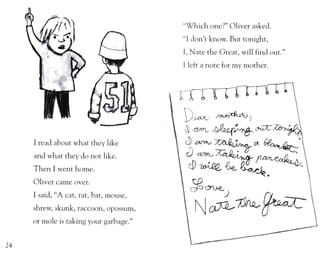 51
I read about what they like
and what they do not like.
Then I went home.
Oliver came over.
I said, “A cat, rat, bat, mouse,
shrew, skunk, raccoon, opossum,
or mole is taking your garbage.”
24
“Which one?” Oliver asked.
“I don’t know. But tonight,
I, Nate the Great, will find out.”
I left a note for my mother.
Dear mother,
I am sleeping out tonight.
I am taking a blanket.
I am taking pancakes.
I will be back.
Love,
Nate the Great